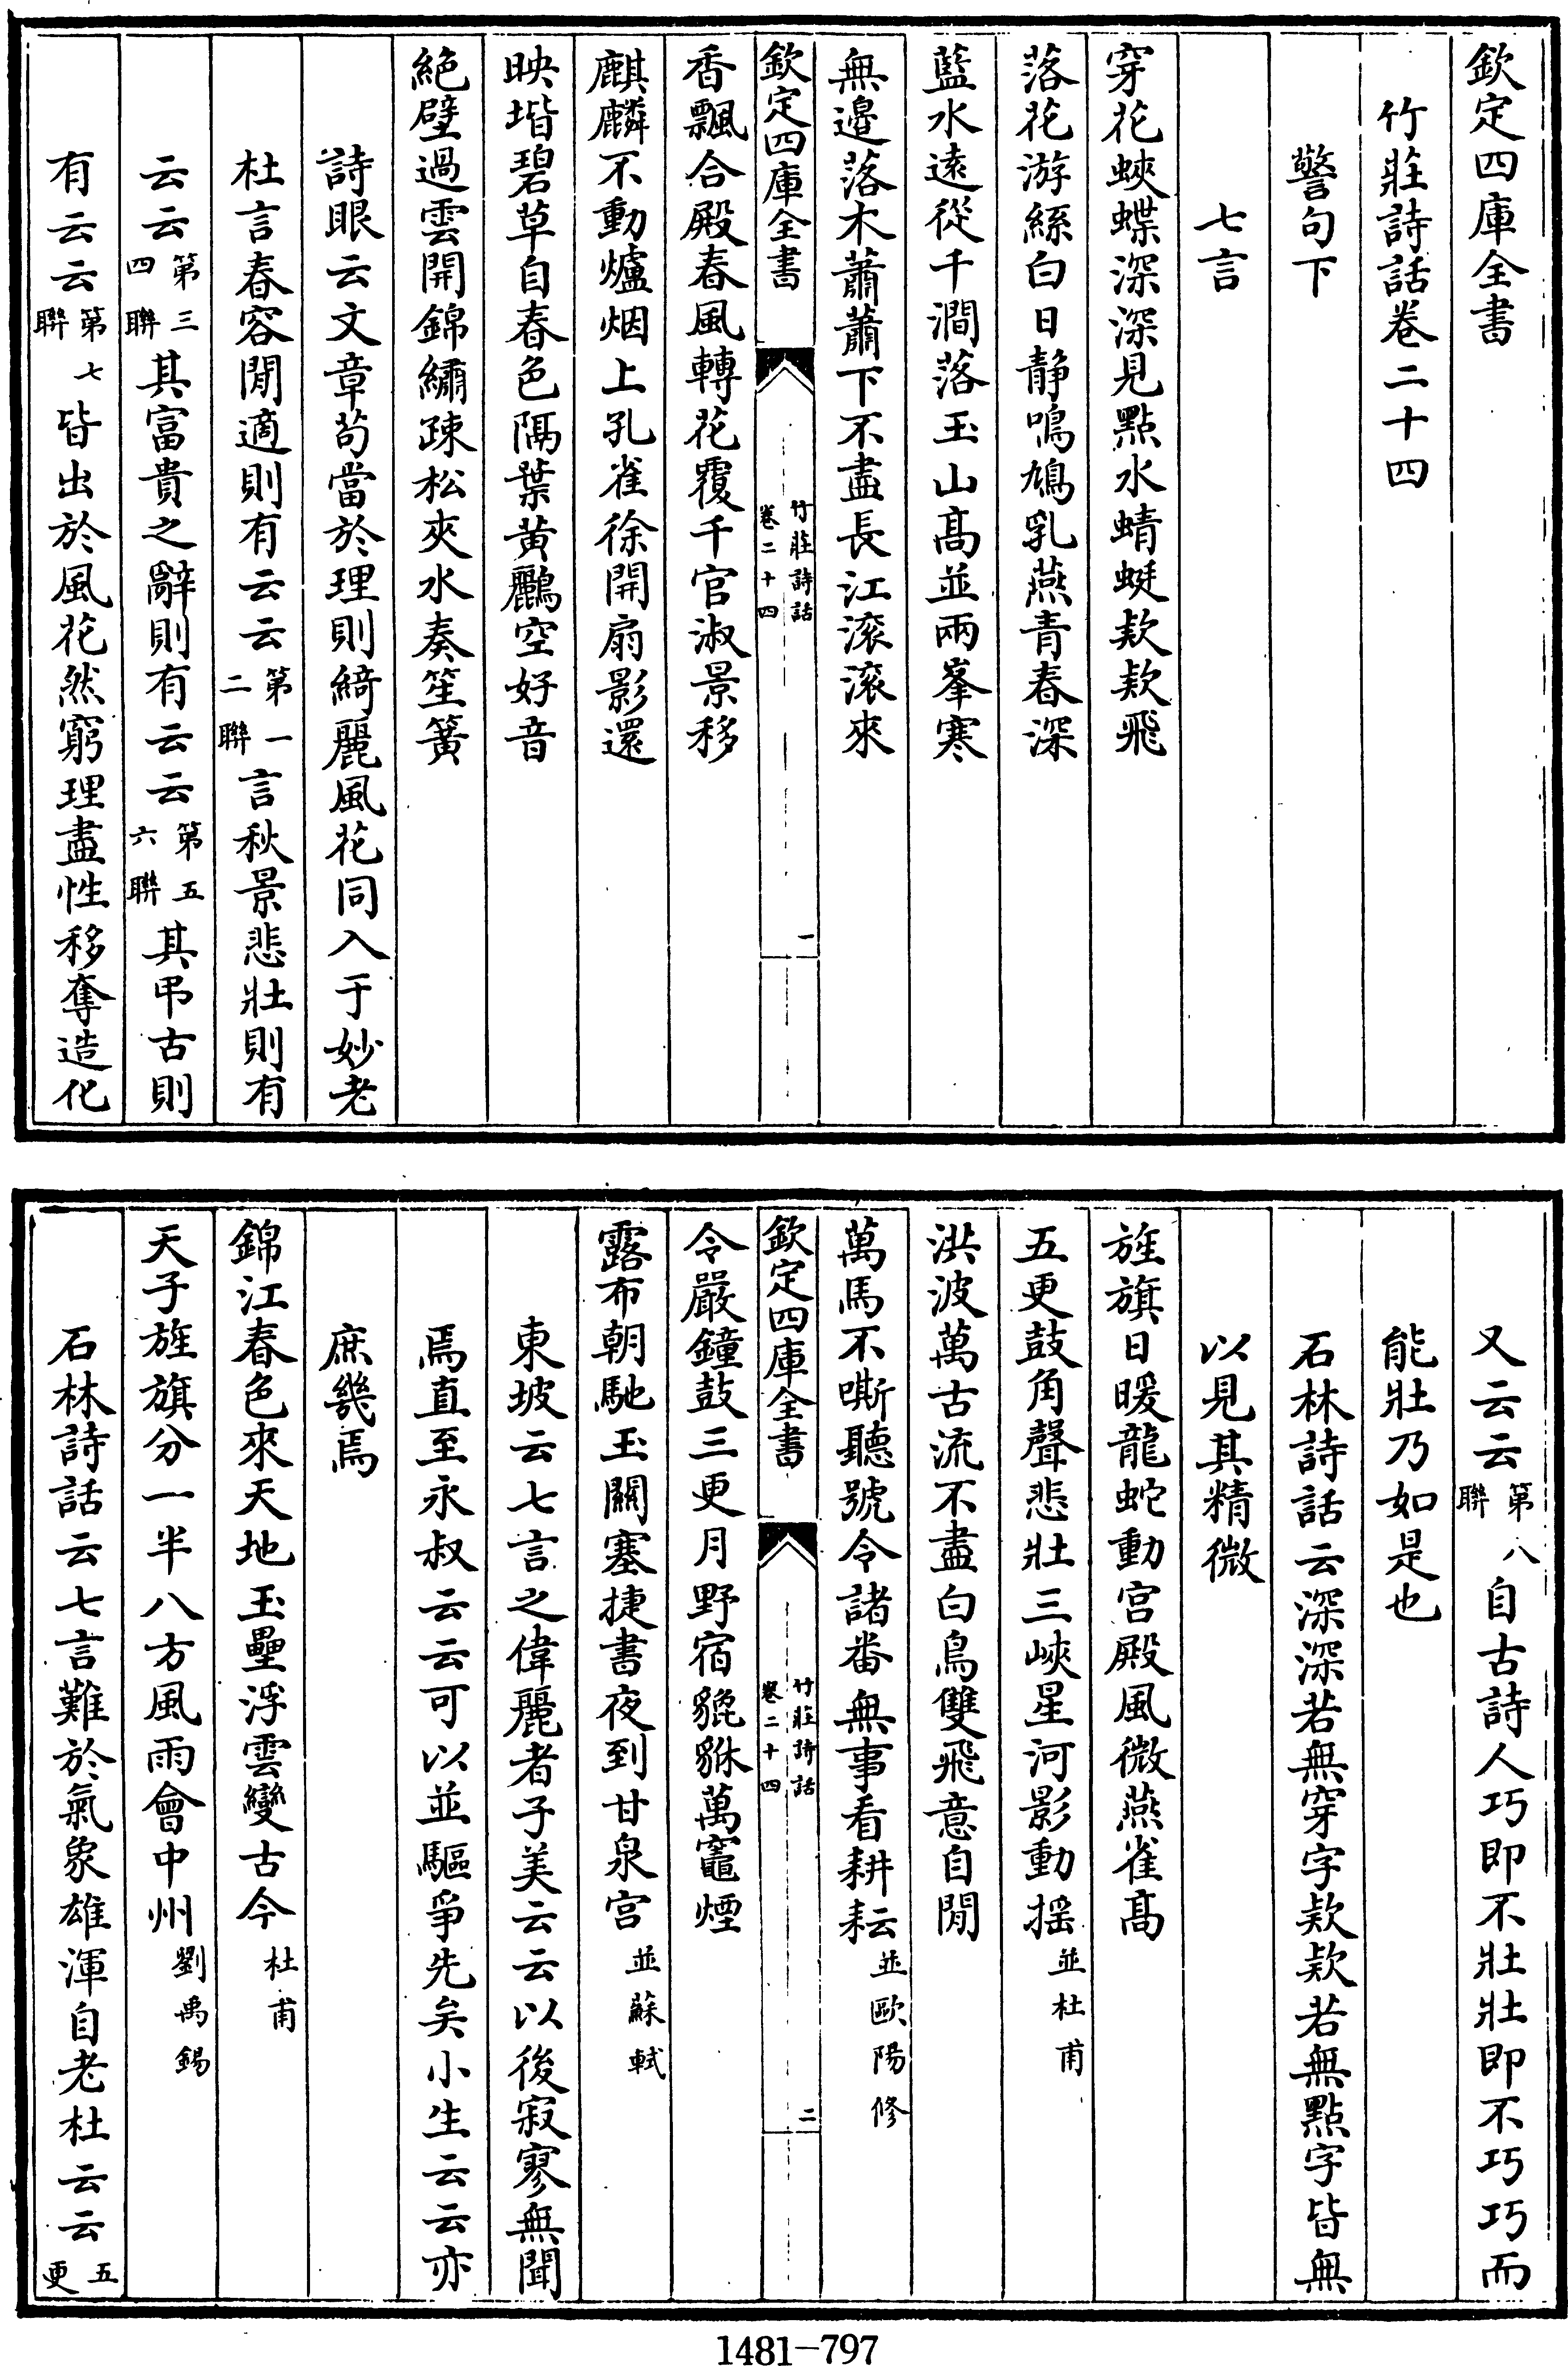 欽定四庫全書
竹莊詩話卷二十四
警句下
七言
穿花蛺蝶深深見點水蜻蜓欵欵飛
落花游絲白日静鳴鳩乳燕青春深
藍水逺從千澗落玉山髙並兩峯寒
無邊落木蕭蕭下不盡長江滚滚來
欽定四庫全書
竹莊詩話
卷二十四
一
香飄合殿春風轉花覆千官淑景移
麒麟不動爐烟上孔雀徐開扇影還
映堦碧草自春色隔葉黄鸝空好音
絶壁過雲開錦繡疎松夾水奏笙簧
詩眼云文章茍當於理則綺麗風花同入于妙老
杜言春容閒適則有云云第一二聯言秋景悲壯則有
云云第三四聯其富貴之辭則有云云第五六聯其弔古則
有云云第七聯皆出於風花然窮理盡性移奪造化
又云云第八聯自古詩人巧即不壯壯即不巧巧而
能壯乃如是也
石林詩話云深深若無穿字欵欵若無點字皆無
以見其精微
旌旗日暖龍蛇動宫殿風微燕雀髙
五更鼓角聲悲壯三峽星河影動揺並杜甫
洪波萬古流不盡白鳥雙飛意自閒
萬馬不嘶聽號令諸番無事看耕耘並歐陽修
欽定四庫全書
竹莊詩話
卷二十四
二
令嚴鐘鼓三更月野宿貔貅萬竈煙
露布朝馳玉關塞捷書夜到甘泉宫並蘇軾
東坡云七言之偉麗者子美云云以後寂寥無聞
焉直至永叔云云可以並驅爭先矣小生云云亦
庶幾焉
錦江春色來天地玉壘浮雲變古今杜甫
天子旌旗分一半八方風雨會中州劉禹錫
石林詩話云七言難於氣象雄渾自老杜云云五更
1481-797